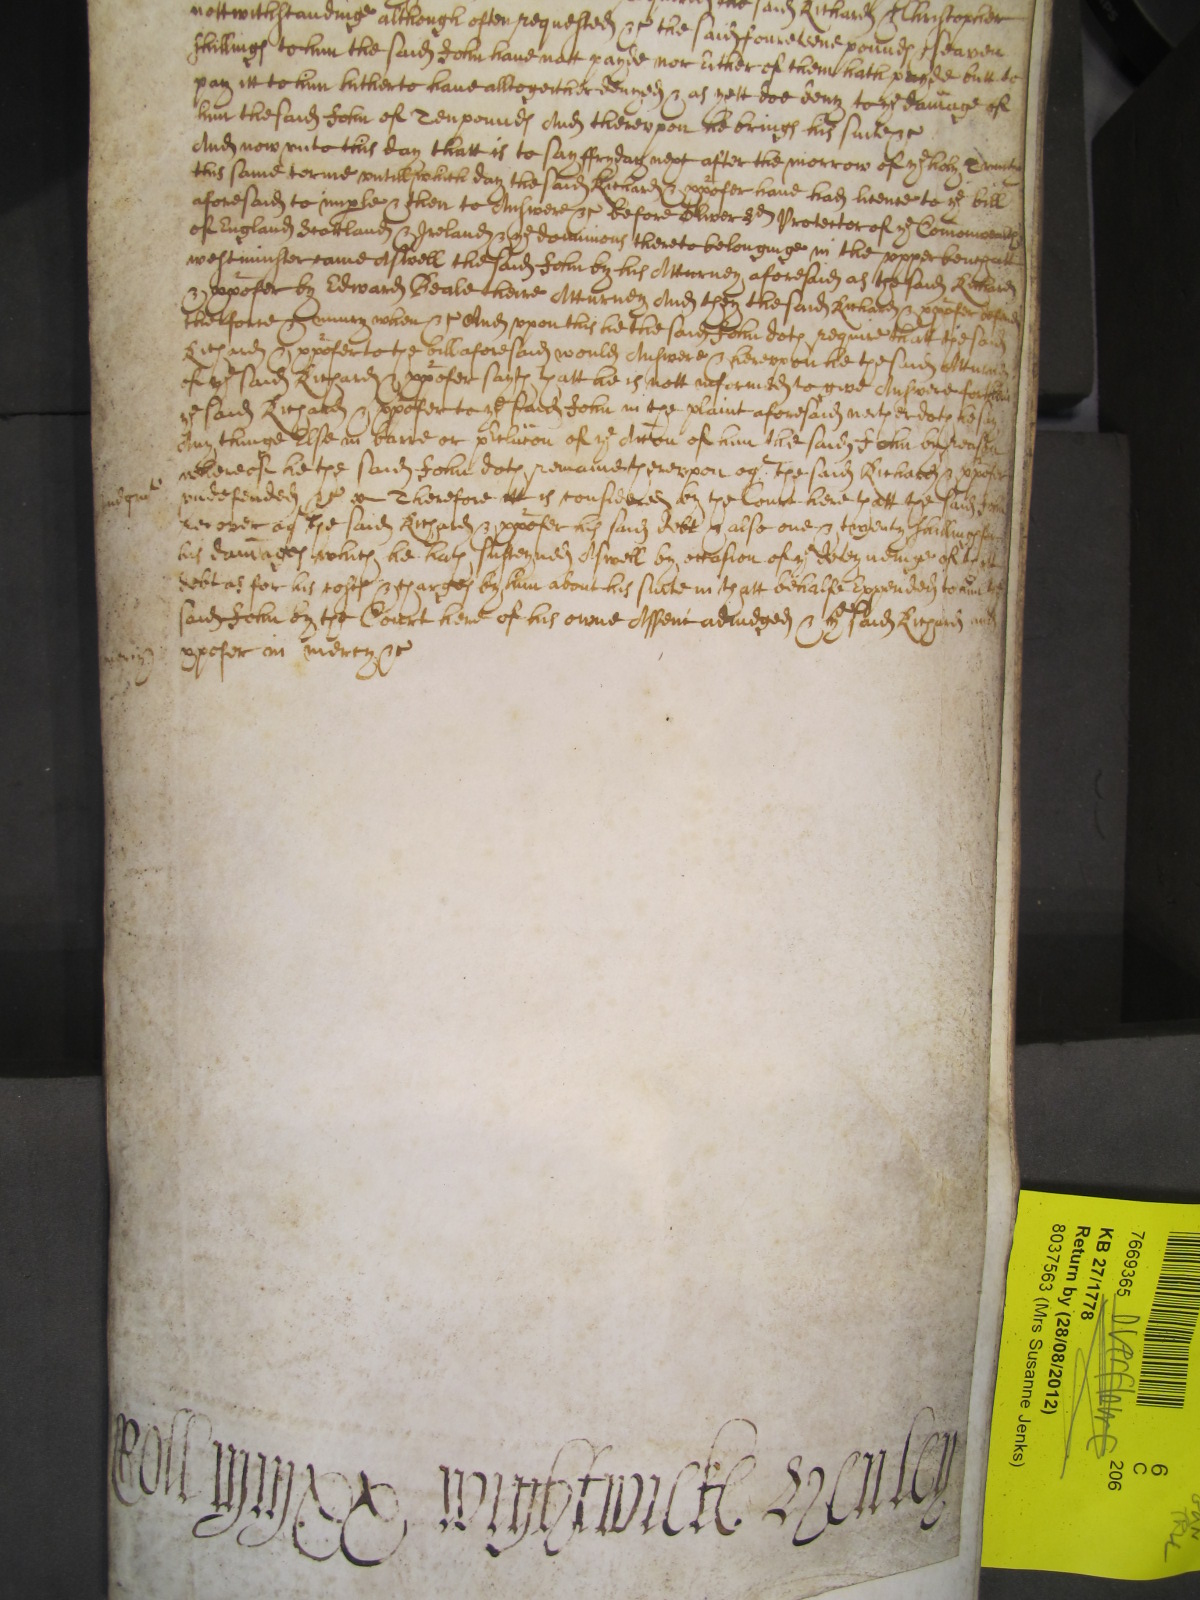 the said Richard & Christopher
nottwithstandinge although often requested &c the said foureteene pounds & seaven
shillings to him the said John have nott payde nor either of them hath payde butt to
pay itt to him hitherto have alltogeither denyed & as yett doe deny to ye damage of
him the said John of Tenpounds And thereupon he brings his suite &c
And now unto this day thatt is to say ffryday next after the morrow of ye holy Trinitie
this same terme untill which day the said Richard & xpofer have had licence to ye bill
aforesaid to imple & then to Answere &c before Oliver Protector of ye Comonwealth
of England Scottland & Ireland & ye dominions thereto belonginge in the upper bench att
westminster came Aswell the said John by his Atturney aforesaid as the said Richard
& xpofer by Edward Beale theire Atturney And they the said Richard & xpofer defend
the force & iniury when &c And upon this he the said John doth require thatt the said
Richard & xpofer to the bill aforesaid would Answere & hereupon he the said Atturney
of ye said Richard & xpofer sayth thatt he is nott informed to give Answere for
ye said Richard & xpofer to ye said John in the plaint aforesaid neither doth he say
Any thinge Else in barre or of ye Action of him the said John by reason
whereof he the said John doth remaine thereupon agt the said Richard & xpofer
undefended &c Therefore itt is considered by the Court here thatt the said John
recover agt the said Richard & xpofer his said debt & also one & twenty shillings for
his damages which he hath susteyned Aswell by occasion of ye deteyneinge of thatt
debt as for his costs & charges by him about his suite in thatt behalfe Expended to him the
said John by the Court here of his owne Assent adiudged & ye said Richard and
xpofer in mercy &c
Roll Wightwick Henley
7669365
KB 27/1778
Return by (28/08/2012)
8037563 (Mrs Susanne Jenks)
206
6
C